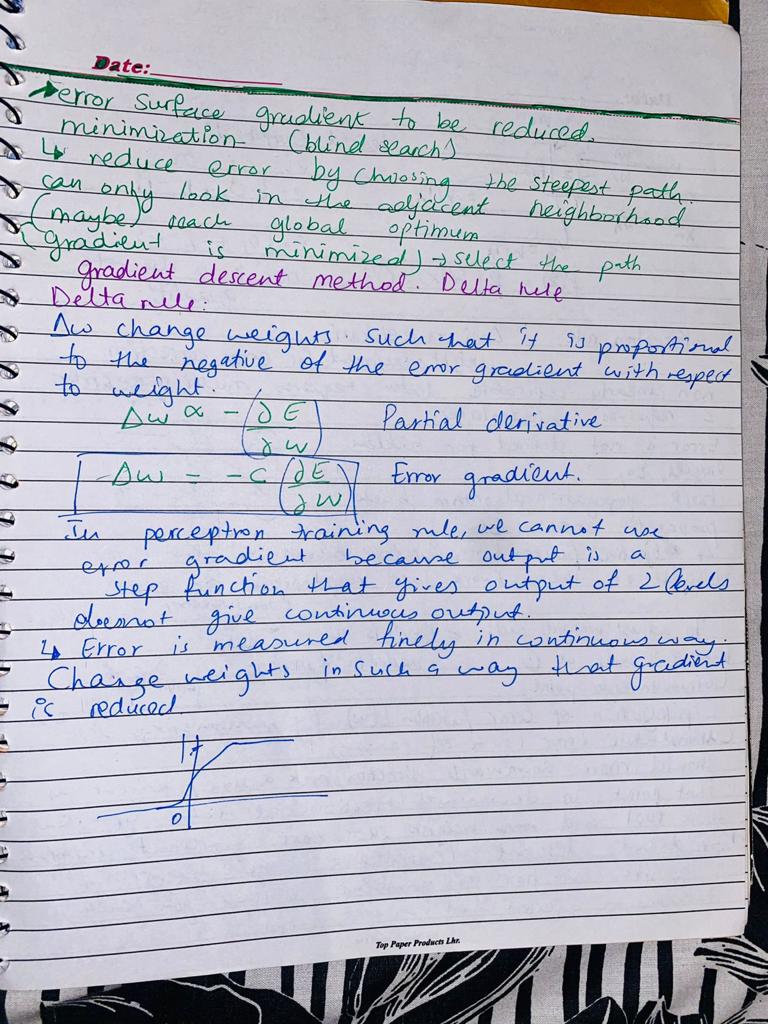 Date:
→ error surface gradient to be reduced.
minimization (blind search)
↳ reduce error by choosing the steepest path.
can only look in the adjacent neighborhood
(maybe) reach global optimum
(gradient is minimized) → select the path
gradient descent method. Delta rule
Delta rule:
Δw change weights. such that it is proportional
to the negative of the error gradient with respect
to weight.
Δw ∝ - (∂E/∂w) Partial derivative
Δw = -c (∂E/∂w) Error gradient.
In perceptron training rule, we cannot use
error gradient because output is a
step function that gives output of 2 levels
doesnot give continuous output.
↳ Error is measured finely in continuous way.
Change weights in such a way that gradient
is reduced
1
0
Top Paper Products Lhr.